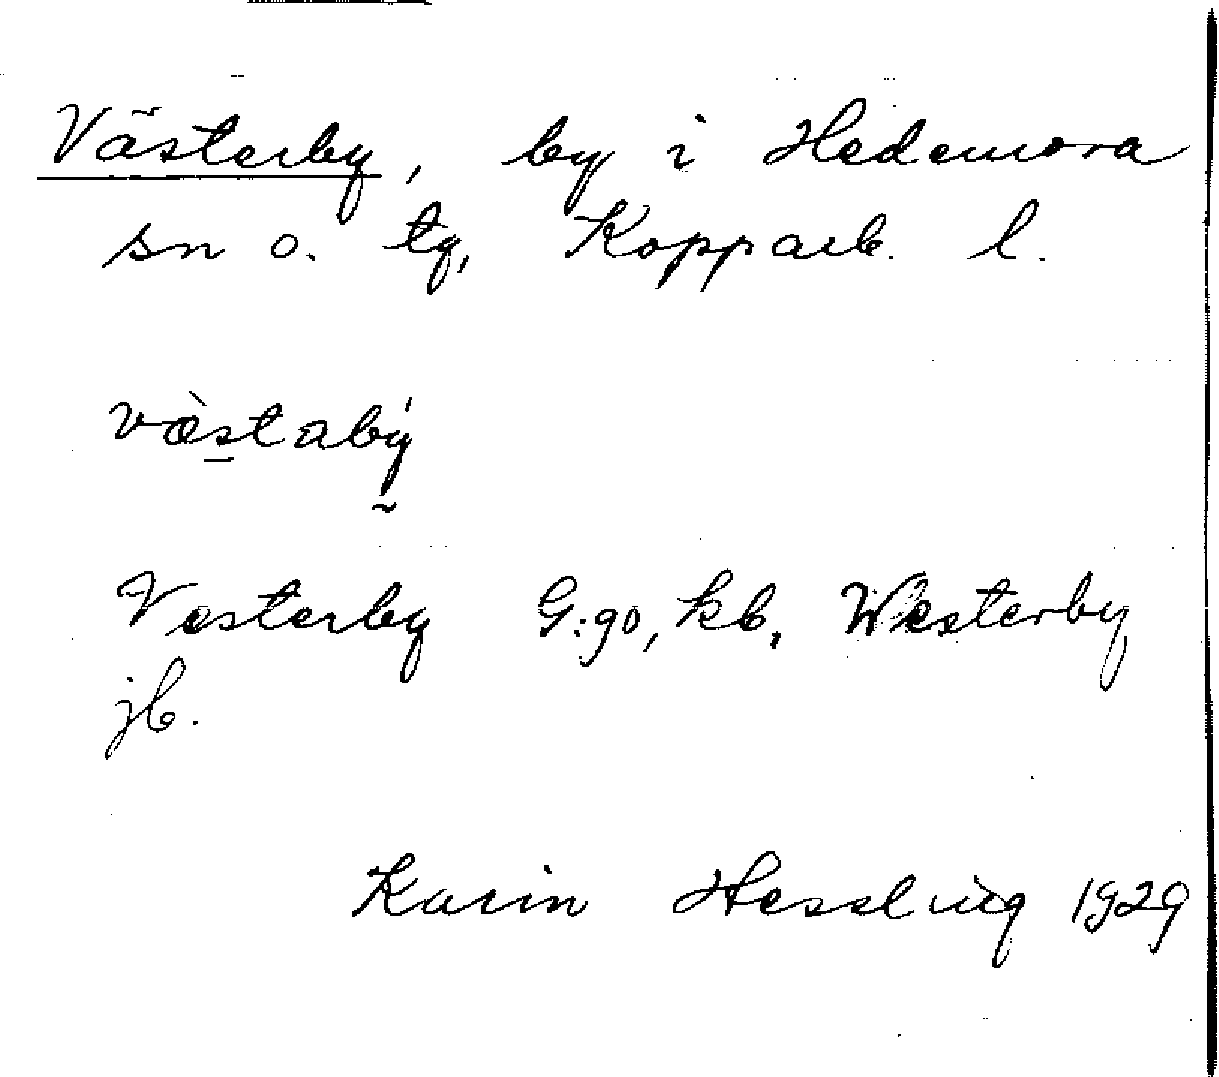 Västerby, by i Hedemora
sn o. tg, Kopparb. l.
væ̀stabý
Vesterby G:go, kb, Westerby
jb.
Karin Hessling 1929